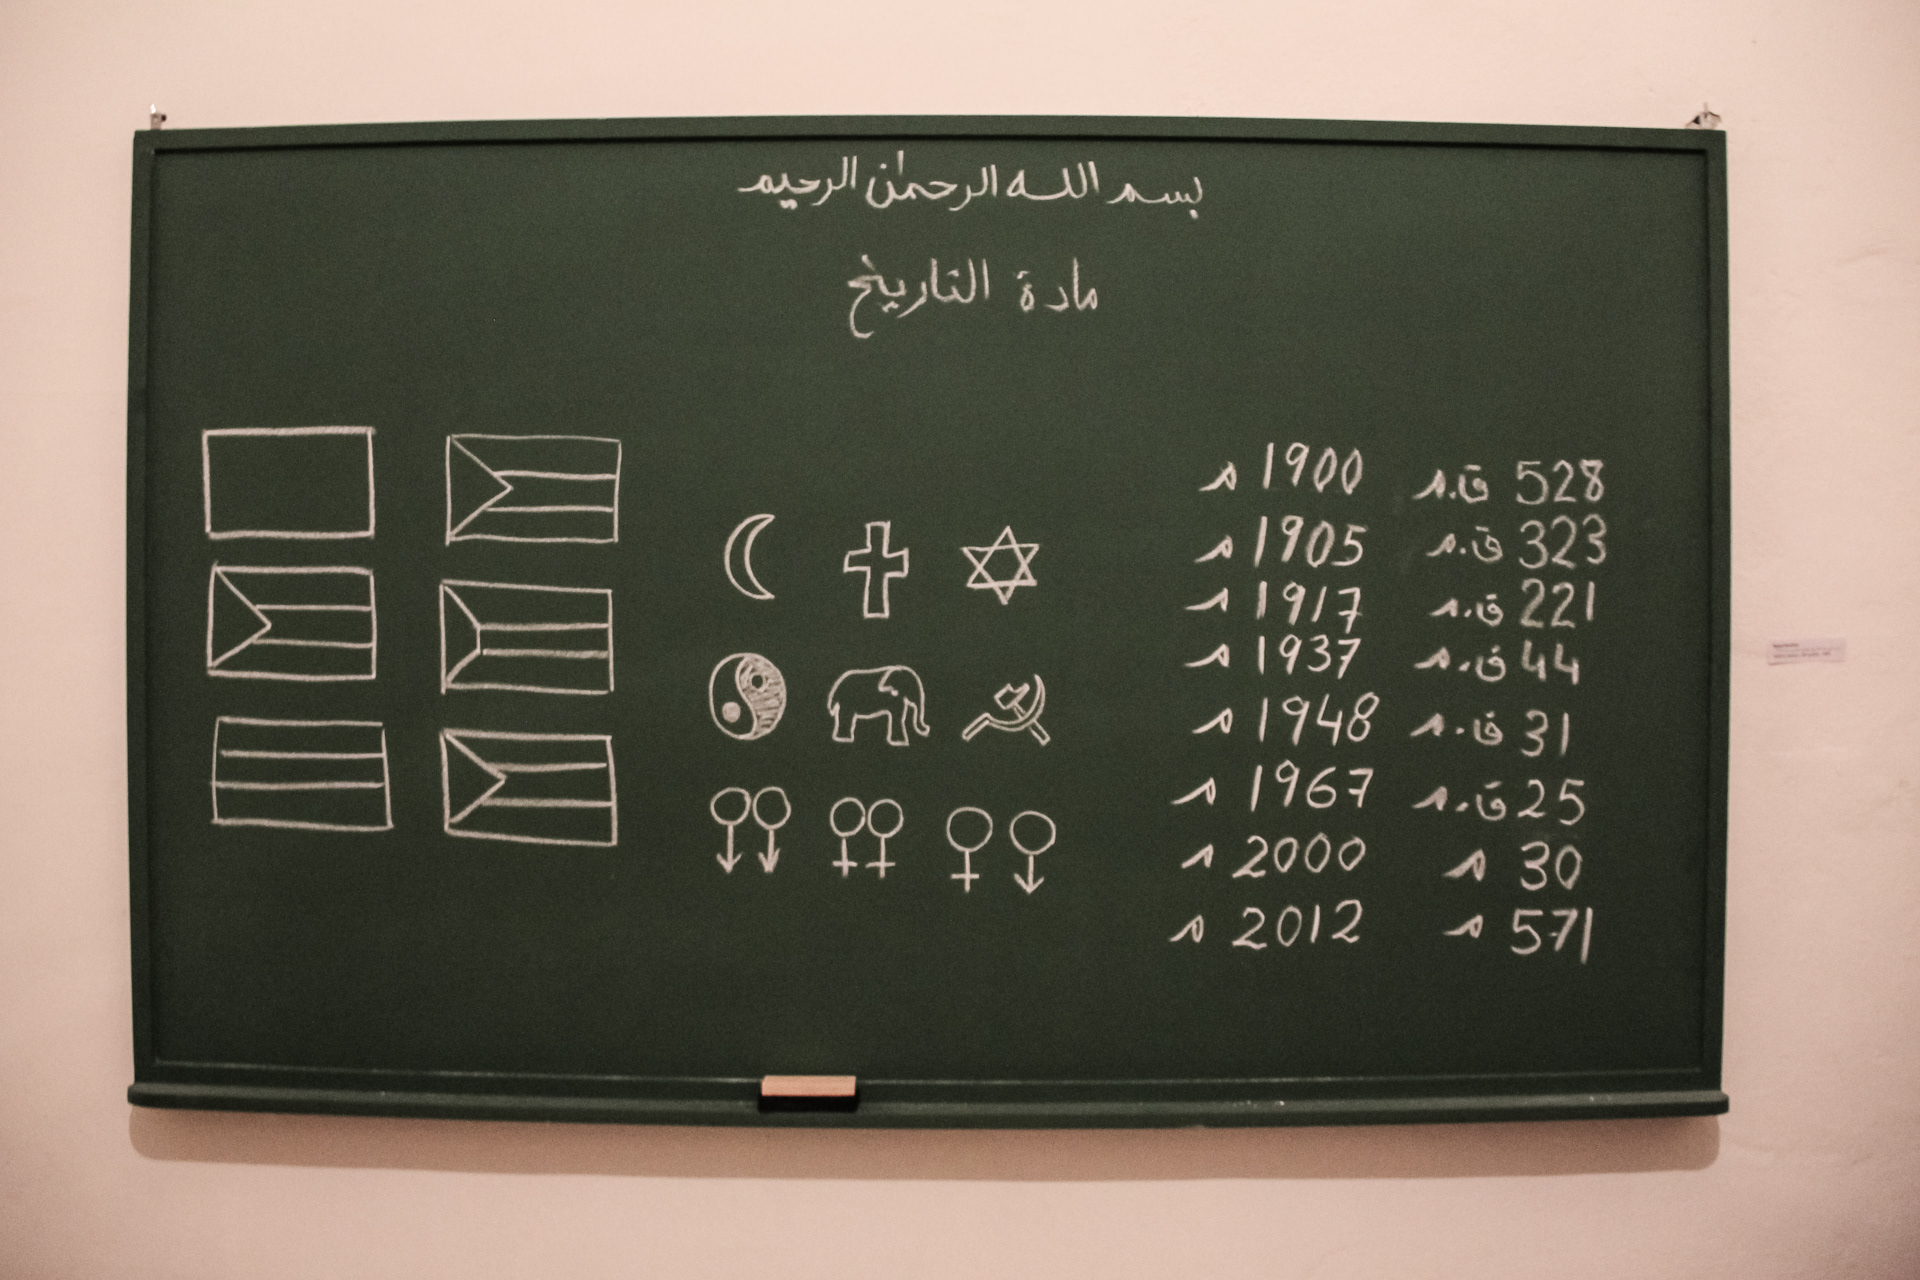 بسم الله الرحمن الرحيم
مادة التاريخ
528 ق.م
323 ق.م
221 ق.م
44 ق.م
31 ق.م
25 ق.م
30 م
571 م
1900 م
1905 م
1917 م
1937 م
1948 م
1967 م
2000 م
2012 م